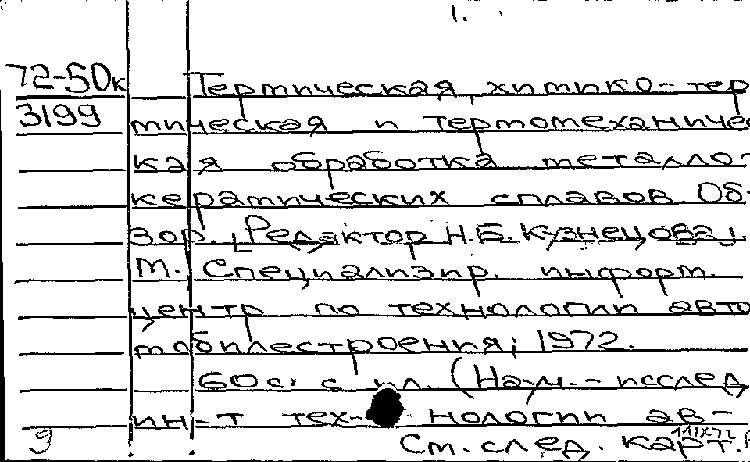 1.
72-50к Термическая, химико-тер
3199 мическая и термомеханичес
кая обработка металло-
керамических сплавов Об-
зор. [Редактор Н.Б. Кузнецова]
М. Специализир. информ.
центр по технологии авто
мобилестроения, 1972.
60 с. с ил. (Науч.-исслед
ин-т технологии ав-
9 См. след. карт.